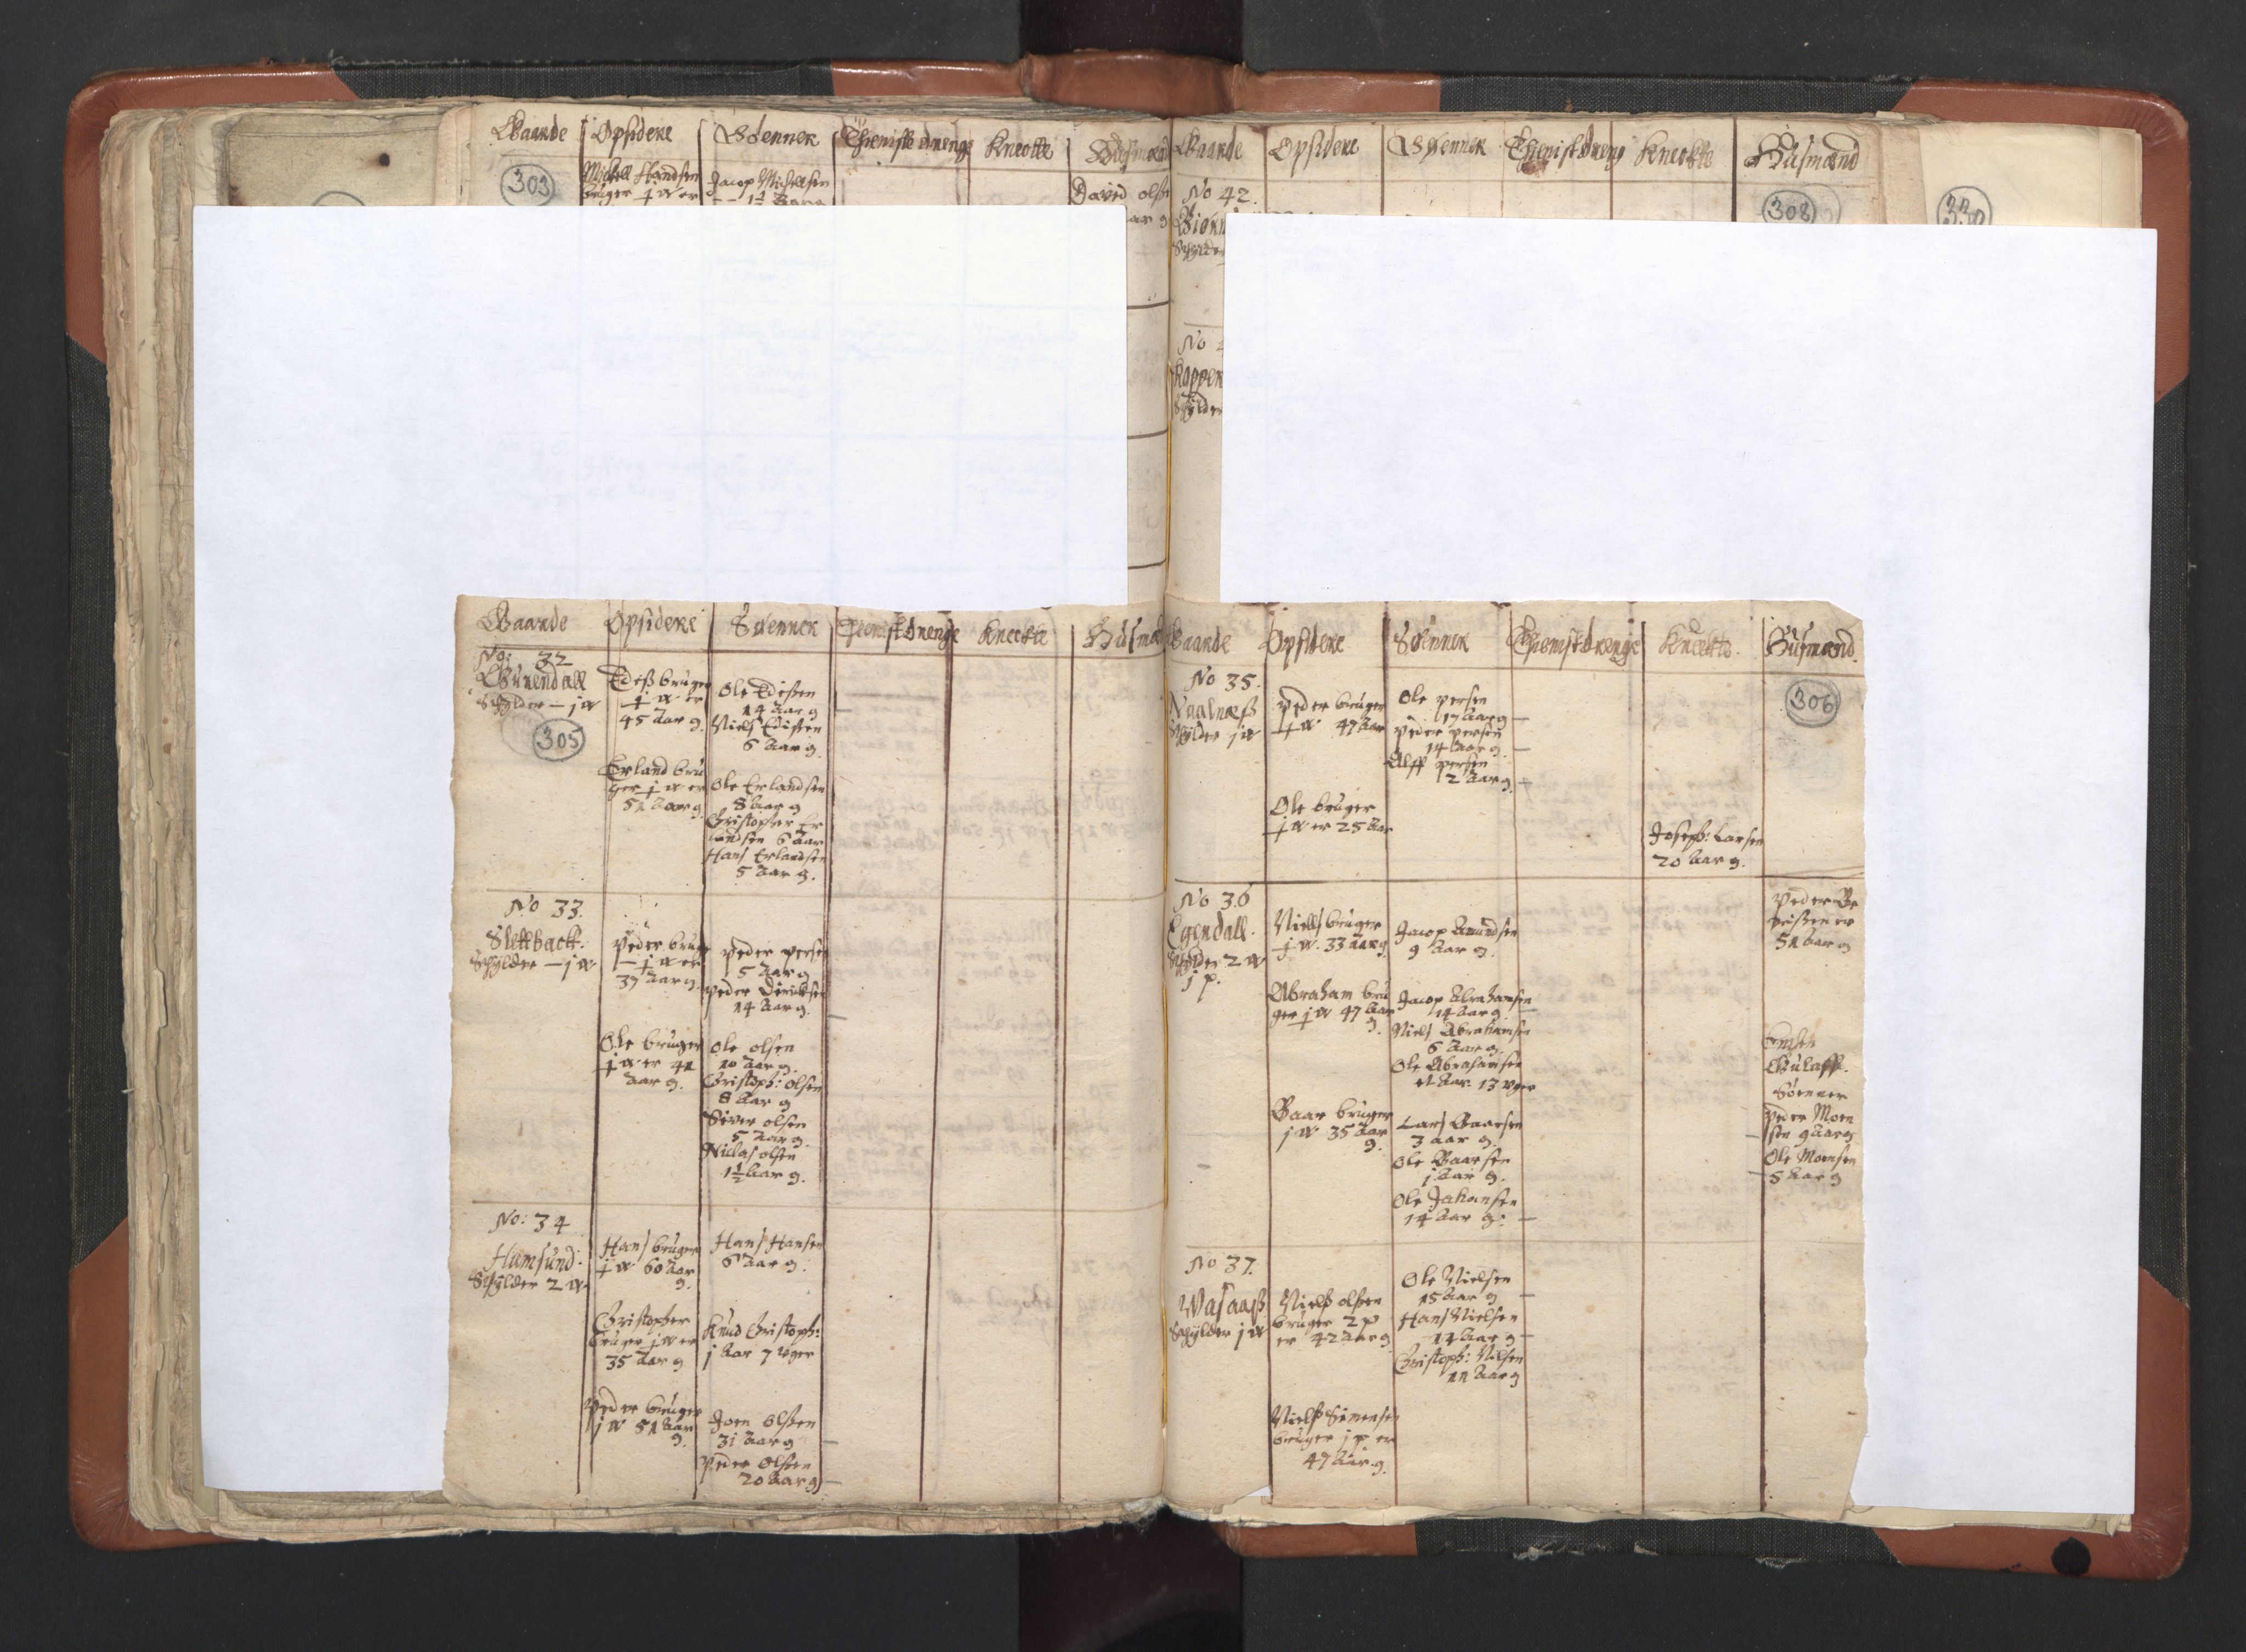 Gaarde Opsidere Sønner Thieniste drenge Knecte Husmænd
303
Michell Handsen
bruger j w er
Jacop Michelsen
1½ Aar g
David olsen
Aar g
Gaarde Opsidere Sønner Thienistdreng Knecte Husmænd
No 42.
Schylder
308
330
No
Schylder
Gaarde Opsidere Sønner Tienistdrenge Knecte Husmæ
No: 32
Schylder — j w
305
Edeß bruger
j w er
45 Aar g.
Ole Edißen
14 Aar g
Niels Edißen
6 Aar g.
Erland bru
ger j w er
51 Aar g
Ole Erlandsen
8 Aar g
Christopher Er
landsen 6 Aar
Hans Erlandsen
5 Aar g.
No 33.
Slettback.
Schylder — j w
Peder bruger
j w er
37 Aar g.
Peder persen
5 Aar g
Peder Dircksen
14 Aar g.
Ole bruger
j w er 41
Aar g.
Ole olsen
10 Aar g.
Christoph: olsen
8 Aar g
Siver olsen
5 Aar g.
Niclas olsen
1½ Aar g.
No: 34
Hamsund.
Schylder 2 w
Hans bruger
j w 60 Aar
g.
Hans Hansen
6 Aar g.
Christopher
bruger j w er
35 Aar g
Knud Christoph:
j Aar 7 uger
Peder bruger
j w 51 Aar
g.
Joen Olßen
31 Aar g
Peder Olsen
20 Aar g
Gaarde Opsidere Sønner Thienistdrenge Knecte. Husmænd.
No 35.
Naalneß
Schylder j w
306
Peder bruger
j w 47 Aar
Ole persen
17 Aar g
Peder persen
14 Aar g.
Alff persen
2 Aar g.
Ole bruger
j w er 25 Aar
Joseph: Larsen
20 Aar g.
No 36
Egendall.
Schylder 2 w
j p.
Niels bruger
j w. 33 Aar g.
Jacop Amundsen
9 Aar g.
Peder
51 Aar g
Abraham bru
ger j w 47 Aar
g.
Jacop Abrahamsen
14 Aar g.
Niels Abrahamsen
6 Aar g.
Ole Abrahamsen
Aar. 13 uger
Baar bruger
j w 35 Aar
g.
Lars Baarsen
3 aar g.
Ole Baarsen
j Aar g.
Ole Johansen
14 Aar g.
Sønner
Peder Moen
sen 9 Aar g
Ole Moensen
5 Aar g
No 37.
Wasaaß
Schylder j w
Nielß olßen
bruger 2 p
er 42 Aar g.
Ole Nielsen
15 Aar g
Hans Nielsen
14 Aar g
Christoph: Nilsen
11 Aar g
Nielß Simensen
bruger j p er
47 Aar g.